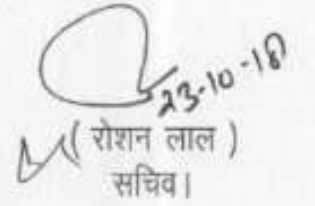 23-10-18
( रोशन लाल )
सचिव।